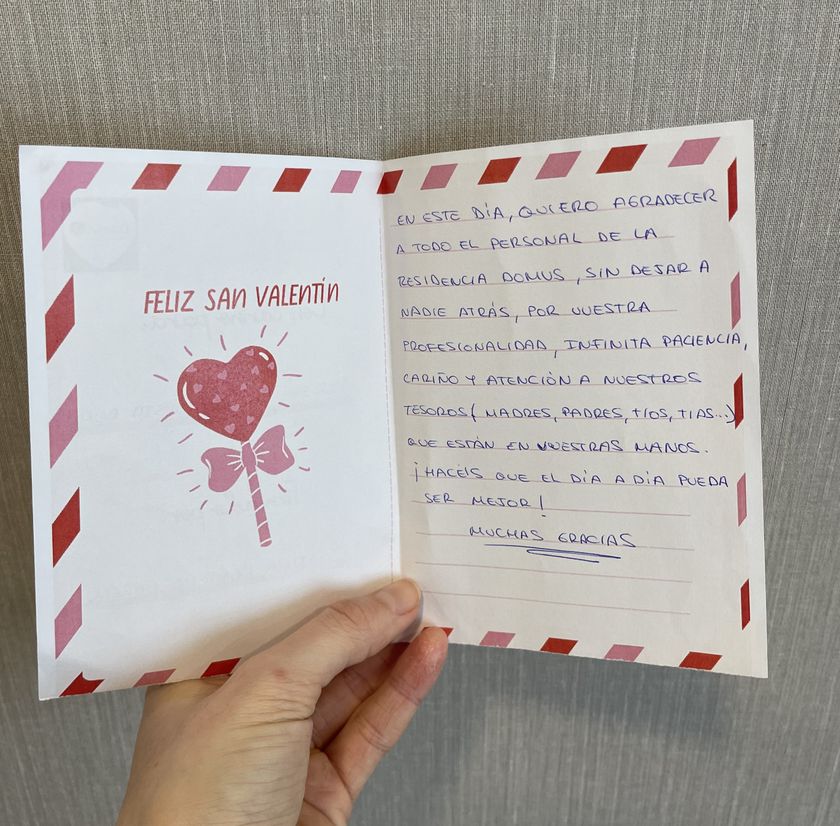 FELIZ SAN VALENTÍN
EN ESTE DÍA, QUIERO AGRADECER
A TODO EL PERSONAL DE LA
RESIDENCIA DOMUS, SIN DEJAR A
NADIE ATRÁS, POR VUESTRA
PROFESIONALIDAD, INFINITA PACIENCIA,
CARIÑO Y ATENCIÓN A NUESTROS
TESOROS (MADRES, PADRES, TÍOS, TÍAS...)
QUE ESTÁN EN VUESTRAS MANOS.
¡HACÉIS QUE EL DÍA A DÍA PUEDA
SER MEJOR!
MUCHAS GRACIAS